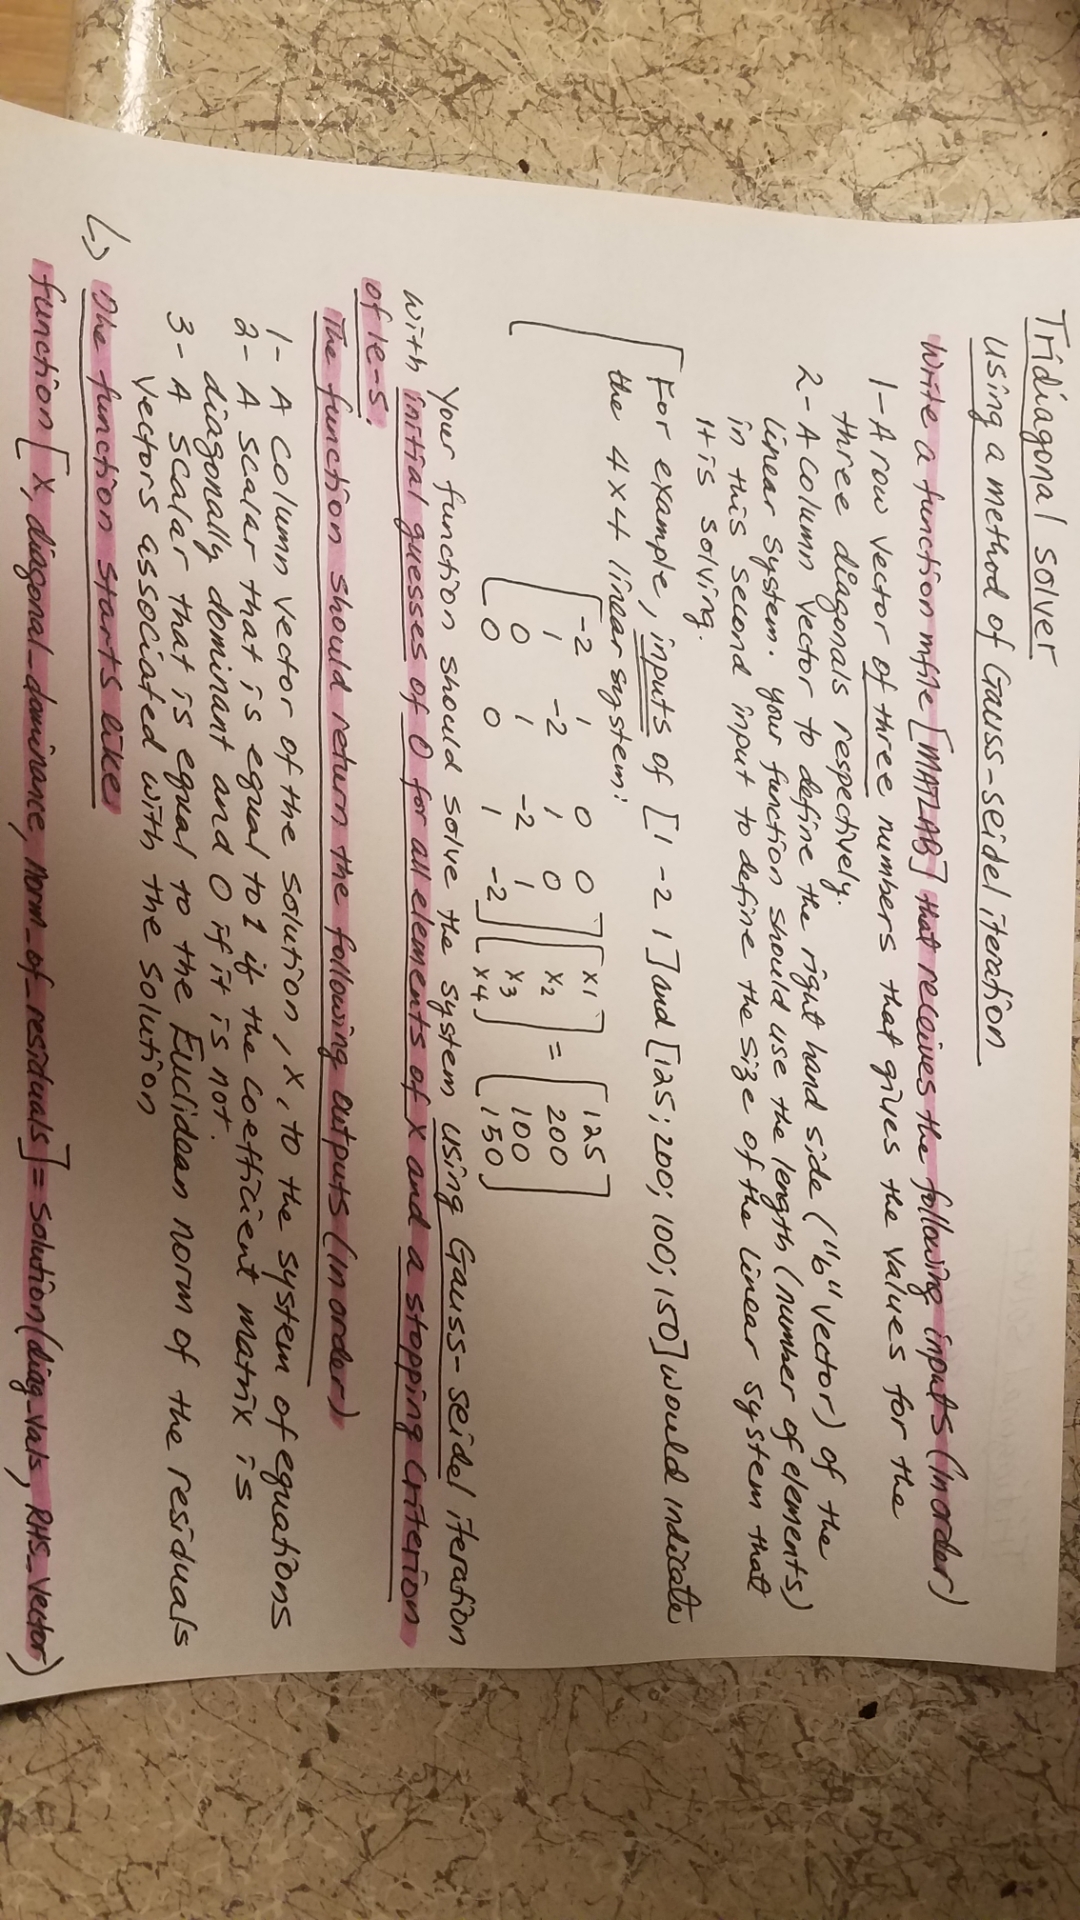 Tridiagonal solver
using a method of Gauss-seidel iteration
Write a function mfile [MATLAB] that receives the following inputs (in order)
1- A row vector of three numbers that gives the values for the
three diagonals respectively.
2- A column vector to define the right hand side ("b" vector) of the
linear system. your function should use the length (number of elements)
in this second input to define the size of the linear system that
it is solving.
For example, inputs of [1 -2 1] and [125; 200; 100; 150] would indicate
the 4x4 linear system:
-2 1 0 0 x1 125
1 -2 1 0 x2 = 200
0 1 -2 1 x3 100
0 0 1 -2 x4 150
Your function should solve the system using Gauss-seidel iteration
with initial guesses of 0 for all elements of x and a stopping criterion
of 1e-5.
The function should return the following outputs (in order)
1- A column vector of the solution, x, to the system of equations
2- A scalar that is equal to 1 if the coefficient matrix is
diagonally dominant and 0 if it is not.
3- A scalar that is equal to the Euclidean norm of the residuals
vectors associated with the solution
↳ One function starts like:
function [x, diagonal_dominance, norm_of_residuals] = solution(diag_vals, RHS_vector)